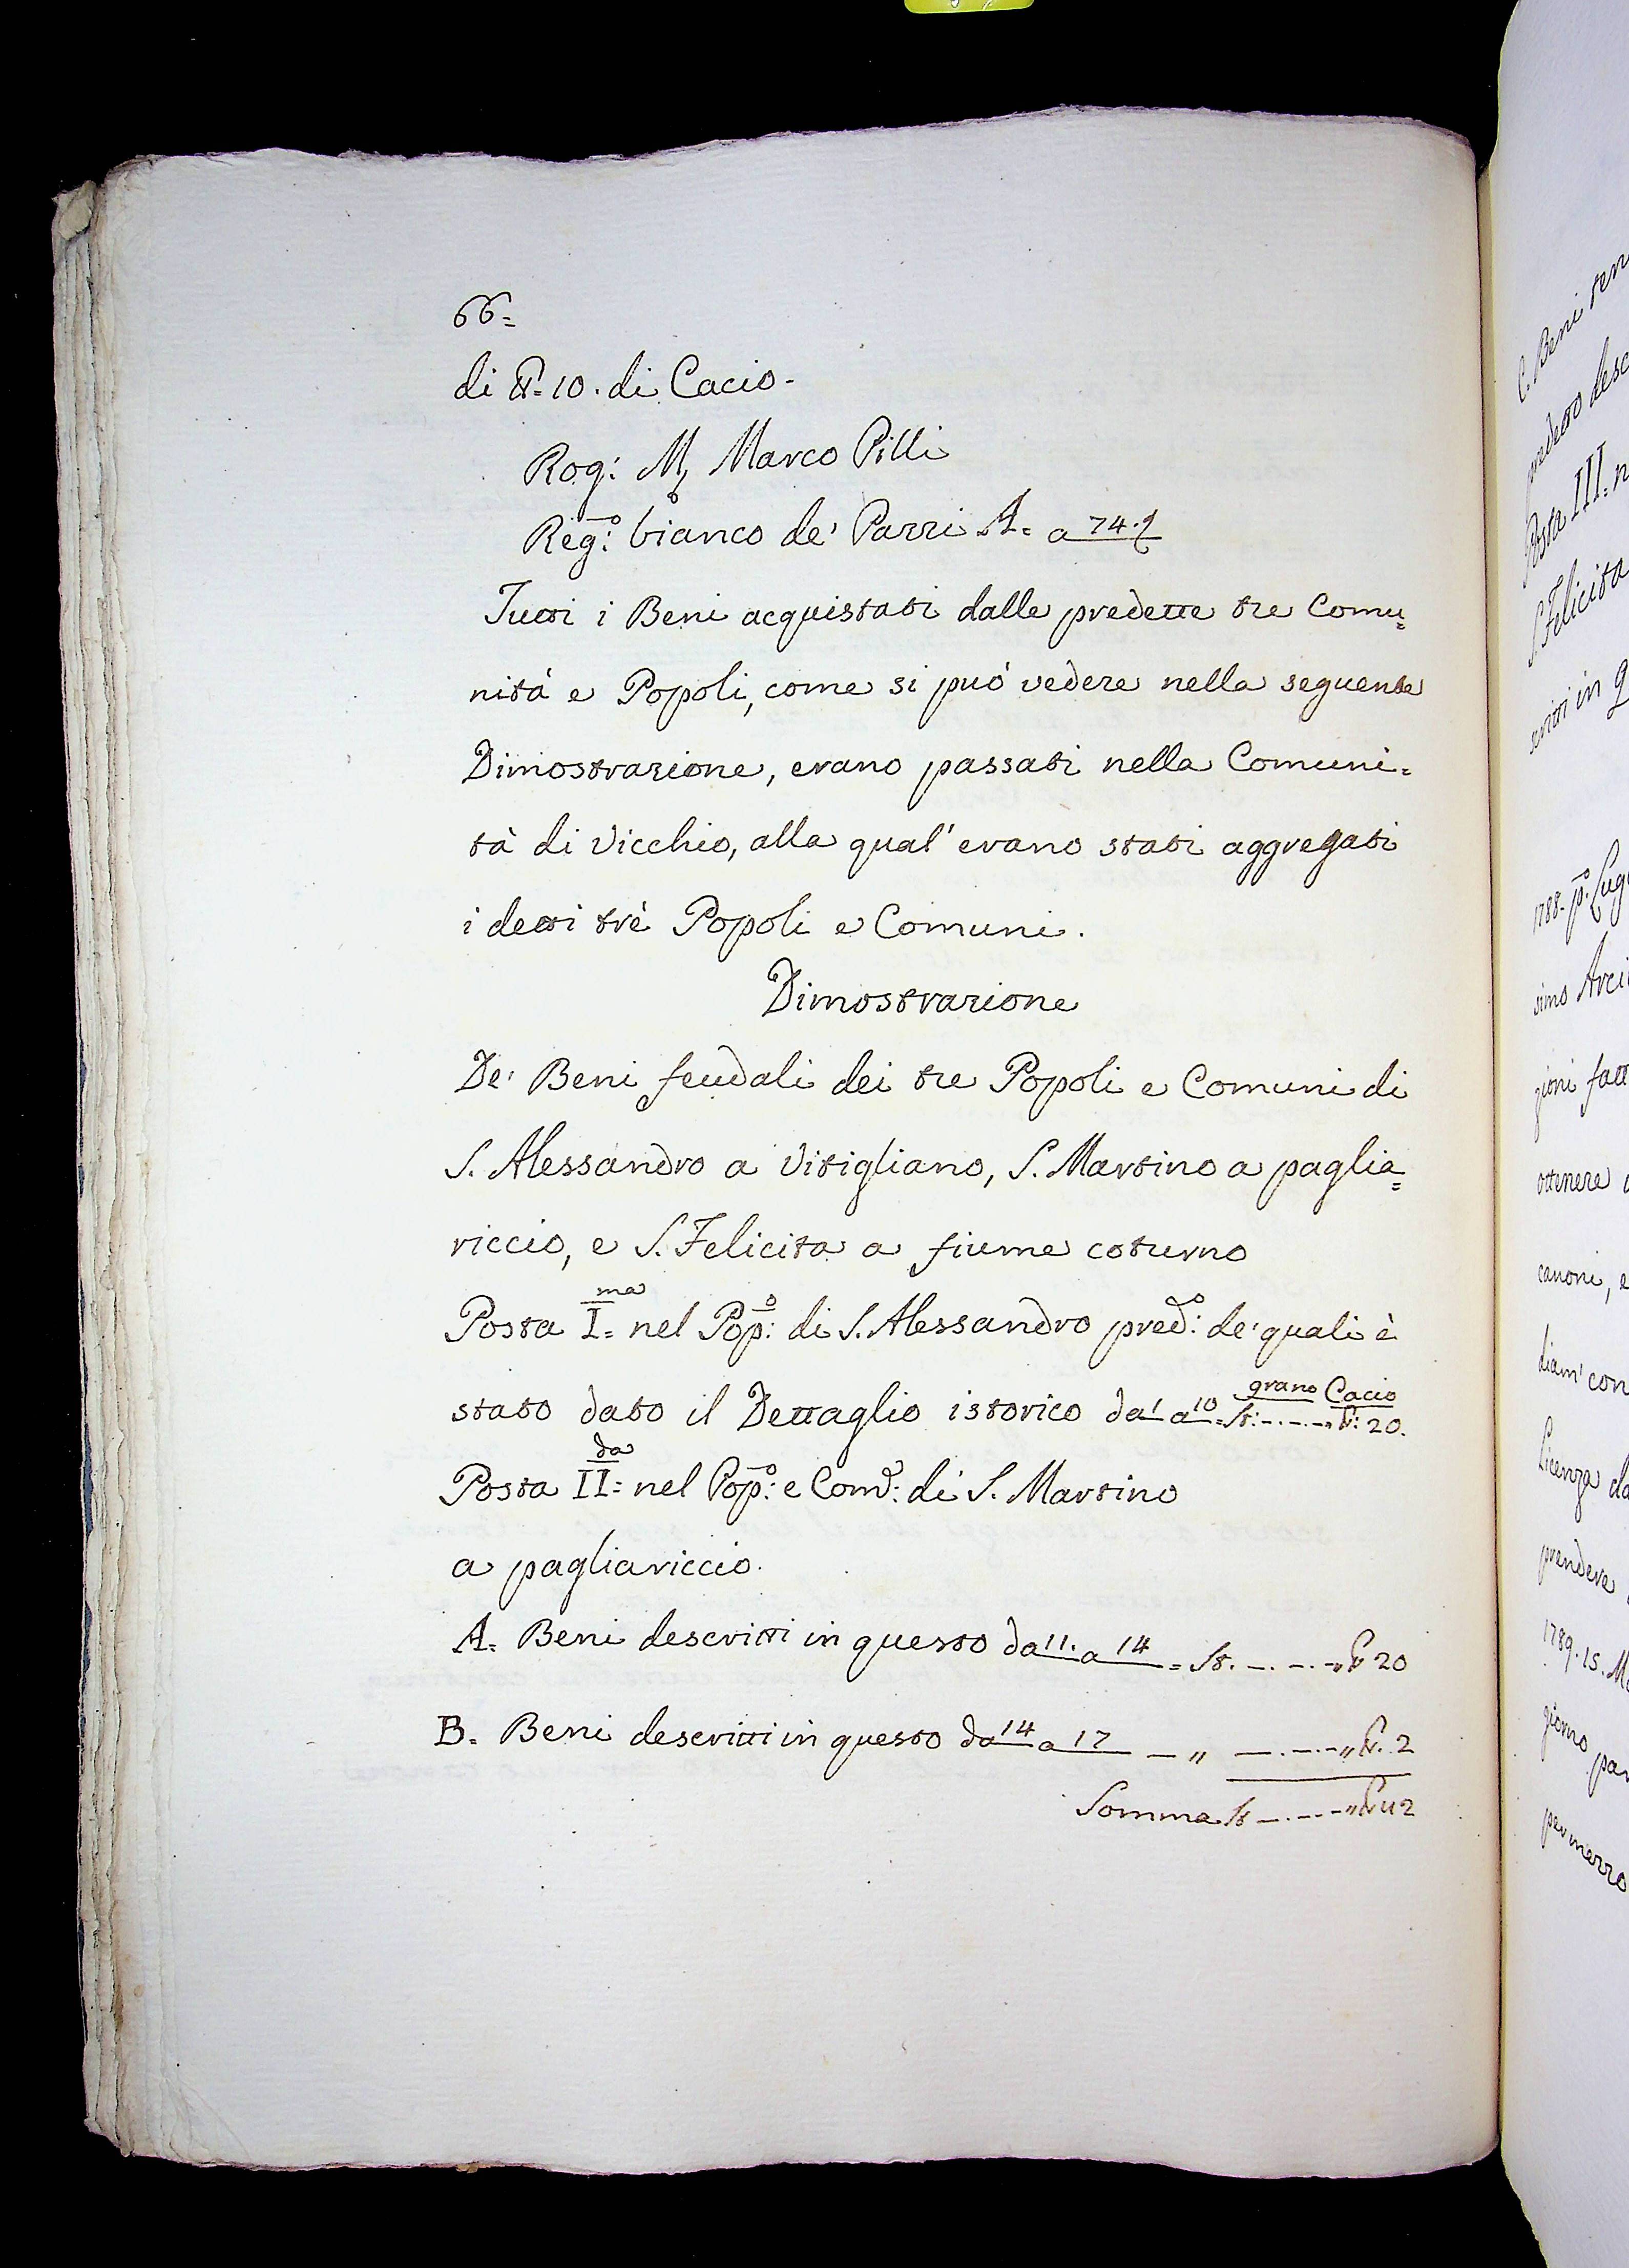 66=
di ℔= 10. di Cacio.
Rog: M, Marco Pilli
Reg:° bianco de' Pazzi A= a 74.
Tutti i Beni acquistati dalle predette tre Comu=
nità e Popoli, come si può vedere nella seguente
Dimostrazione, erano passati nella Comuni=
tà di Vicchio, alla qual' erano stati aggregati
i detti trè Popoli e Comuni.
Dimostrazione
De' Beni feudali dei tre Popoli e Comuni di
S. Alessandro a Vitigliano, S. Martino a paglia=
riccio, e S. Felicita a fiume coturno
Posta I=ma nel Pop:° di S. Alessandro pred:° de' quali è
grano Cacio
stato dato il Dettaglio istorico da 1 a 10= St: -.-.-„ ℔: 20.
Posta II=da nel Pop:° e Com: di S. Martino
a pagliariccio.
A= Beni descritti in questo da 11. a 14 = St. -.-.-„ ℔ 20
B= Beni descritti in questo da 14 a 17 - „ -.-.-„ ℔. 2
Somma St -.-.-„ ℔ 42
C. Beni
Posta III=
S. Felicita
1788.
simo
ottenere
canoni, e
diam' con
Licenza
prendere
1789. 15.
giorno
per mezzo